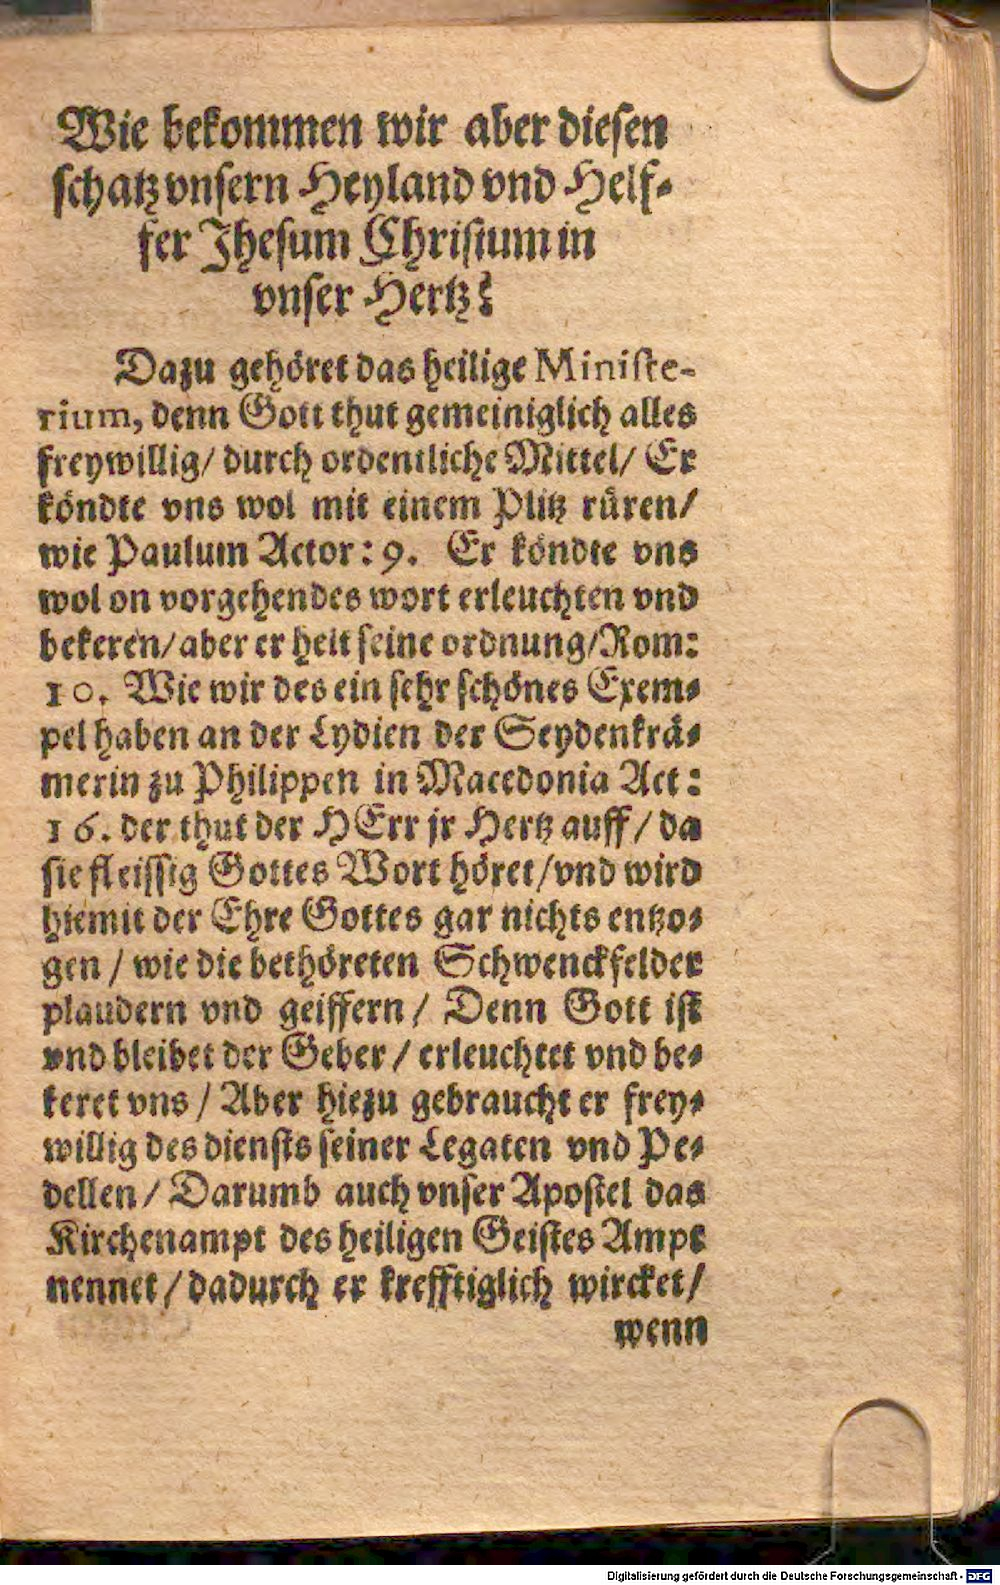 Wie bekommen wir aber diesen
schatz vnsern Heyland vnd Helf-
fer Jhesum Christum in
vnser Hertz?
Dazu gehöret das heilige Ministe-
rium, denn Gott thut gemeiniglich alles
freywillig/ durch ordentliche Mittel/ Er
köndte vns wol mit einem Plitz rüren/
wie Paulum Actor: 9. Er köndte vns
wol on vorgehendes wort erleuchten vnd
bekeren/ aber er helt seine ordnung/ Rom:
10. Wie wir des ein sehr schönes Exem-
pel haben an der Lydien der Seydenkrä-
merin zu Philippen in Macedonia Act:
16. der thut der HErr jr Hertz auff/ da
sie fleissig Gottes Wort höret/ vnd wird
hiemit der Ehre Gottes gar nichts entzo-
gen/ wie die bethöreten Schwenckfelder
plaudern vnd geiffern/ Denn Gott ist
vnd bleibet der Geber/ erleuchtet vnd be-
keret vns/ Aber hiezu gebraucht er frey-
willig des diensts seiner Legaten vnd Pe-
dellen/ Darumb auch vnser Apostel das
Kirchenampt des heiligen Geistes Ampt
nennet/ dadurch er krefftiglich wircket/
wenn
Digitalisierung gefördert durch die Deutsche Forschungsgemeinschaft - DFG